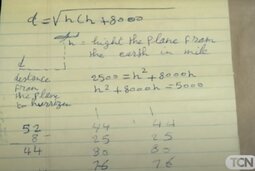 d = √h(h + 8000
h = hight the plane from
the earth in mile
d
distance
From
the plane
to hurrizon
2500 = h² + 8000h
h² + 8000h = 5000
52 44 44
8 25 25
44 80 80
76 76
TCN